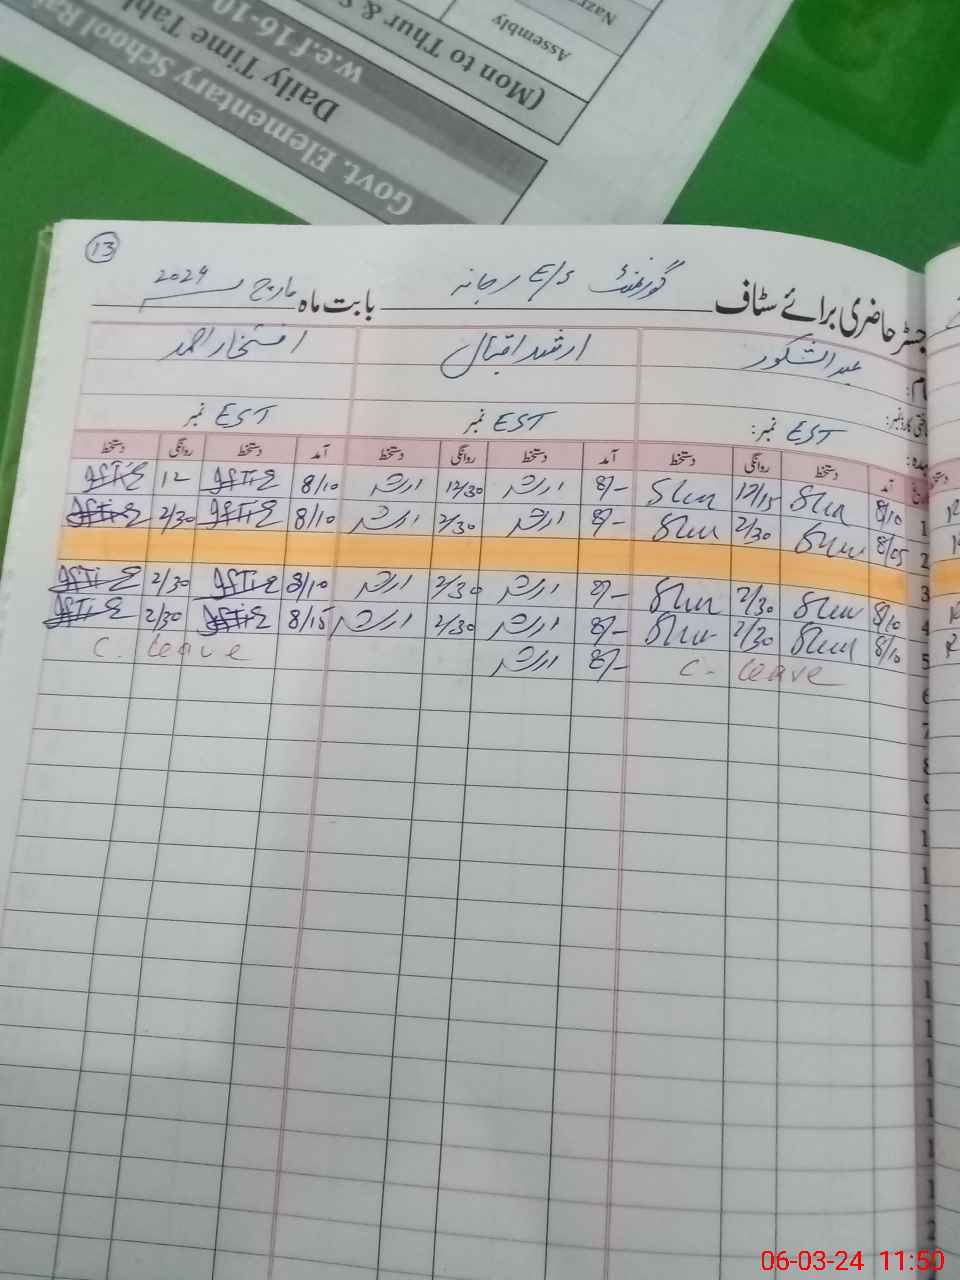 Govt. Elementary School Raj
Daily Time Tabl
w.e.f 16-10
(Mon to Thur & S
Assembly
Nazr
13
جسٹر حاضری برائے سٹاف گورنمنٹ E/S رجانہ بابت ماہ مارچ 2024
نام: عبدالشکور ارشد اقبال افتخار احمد
EST نمبر: EST نمبر EST نمبر
آمد دستخط روانگی دستخط آمد دستخط روانگی دستخط آمد دستخط روانگی دستخط
1 8/10 12/15 8/- ارشد 12/30 ارشد 8/10 12
2 8/05 2/30 8/- ارشد 2/30 ارشد 8/10 2/30
3
4 8/10 2/30 8/- ارشد 2/30 ارشد 8/10 2/30
5 8/10 2/30 8/- ارشد 2/30 ارشد 8/15 2/30
6 C. leave 8/- ارشد C. leave
7
8
9
06-03-24 11:50